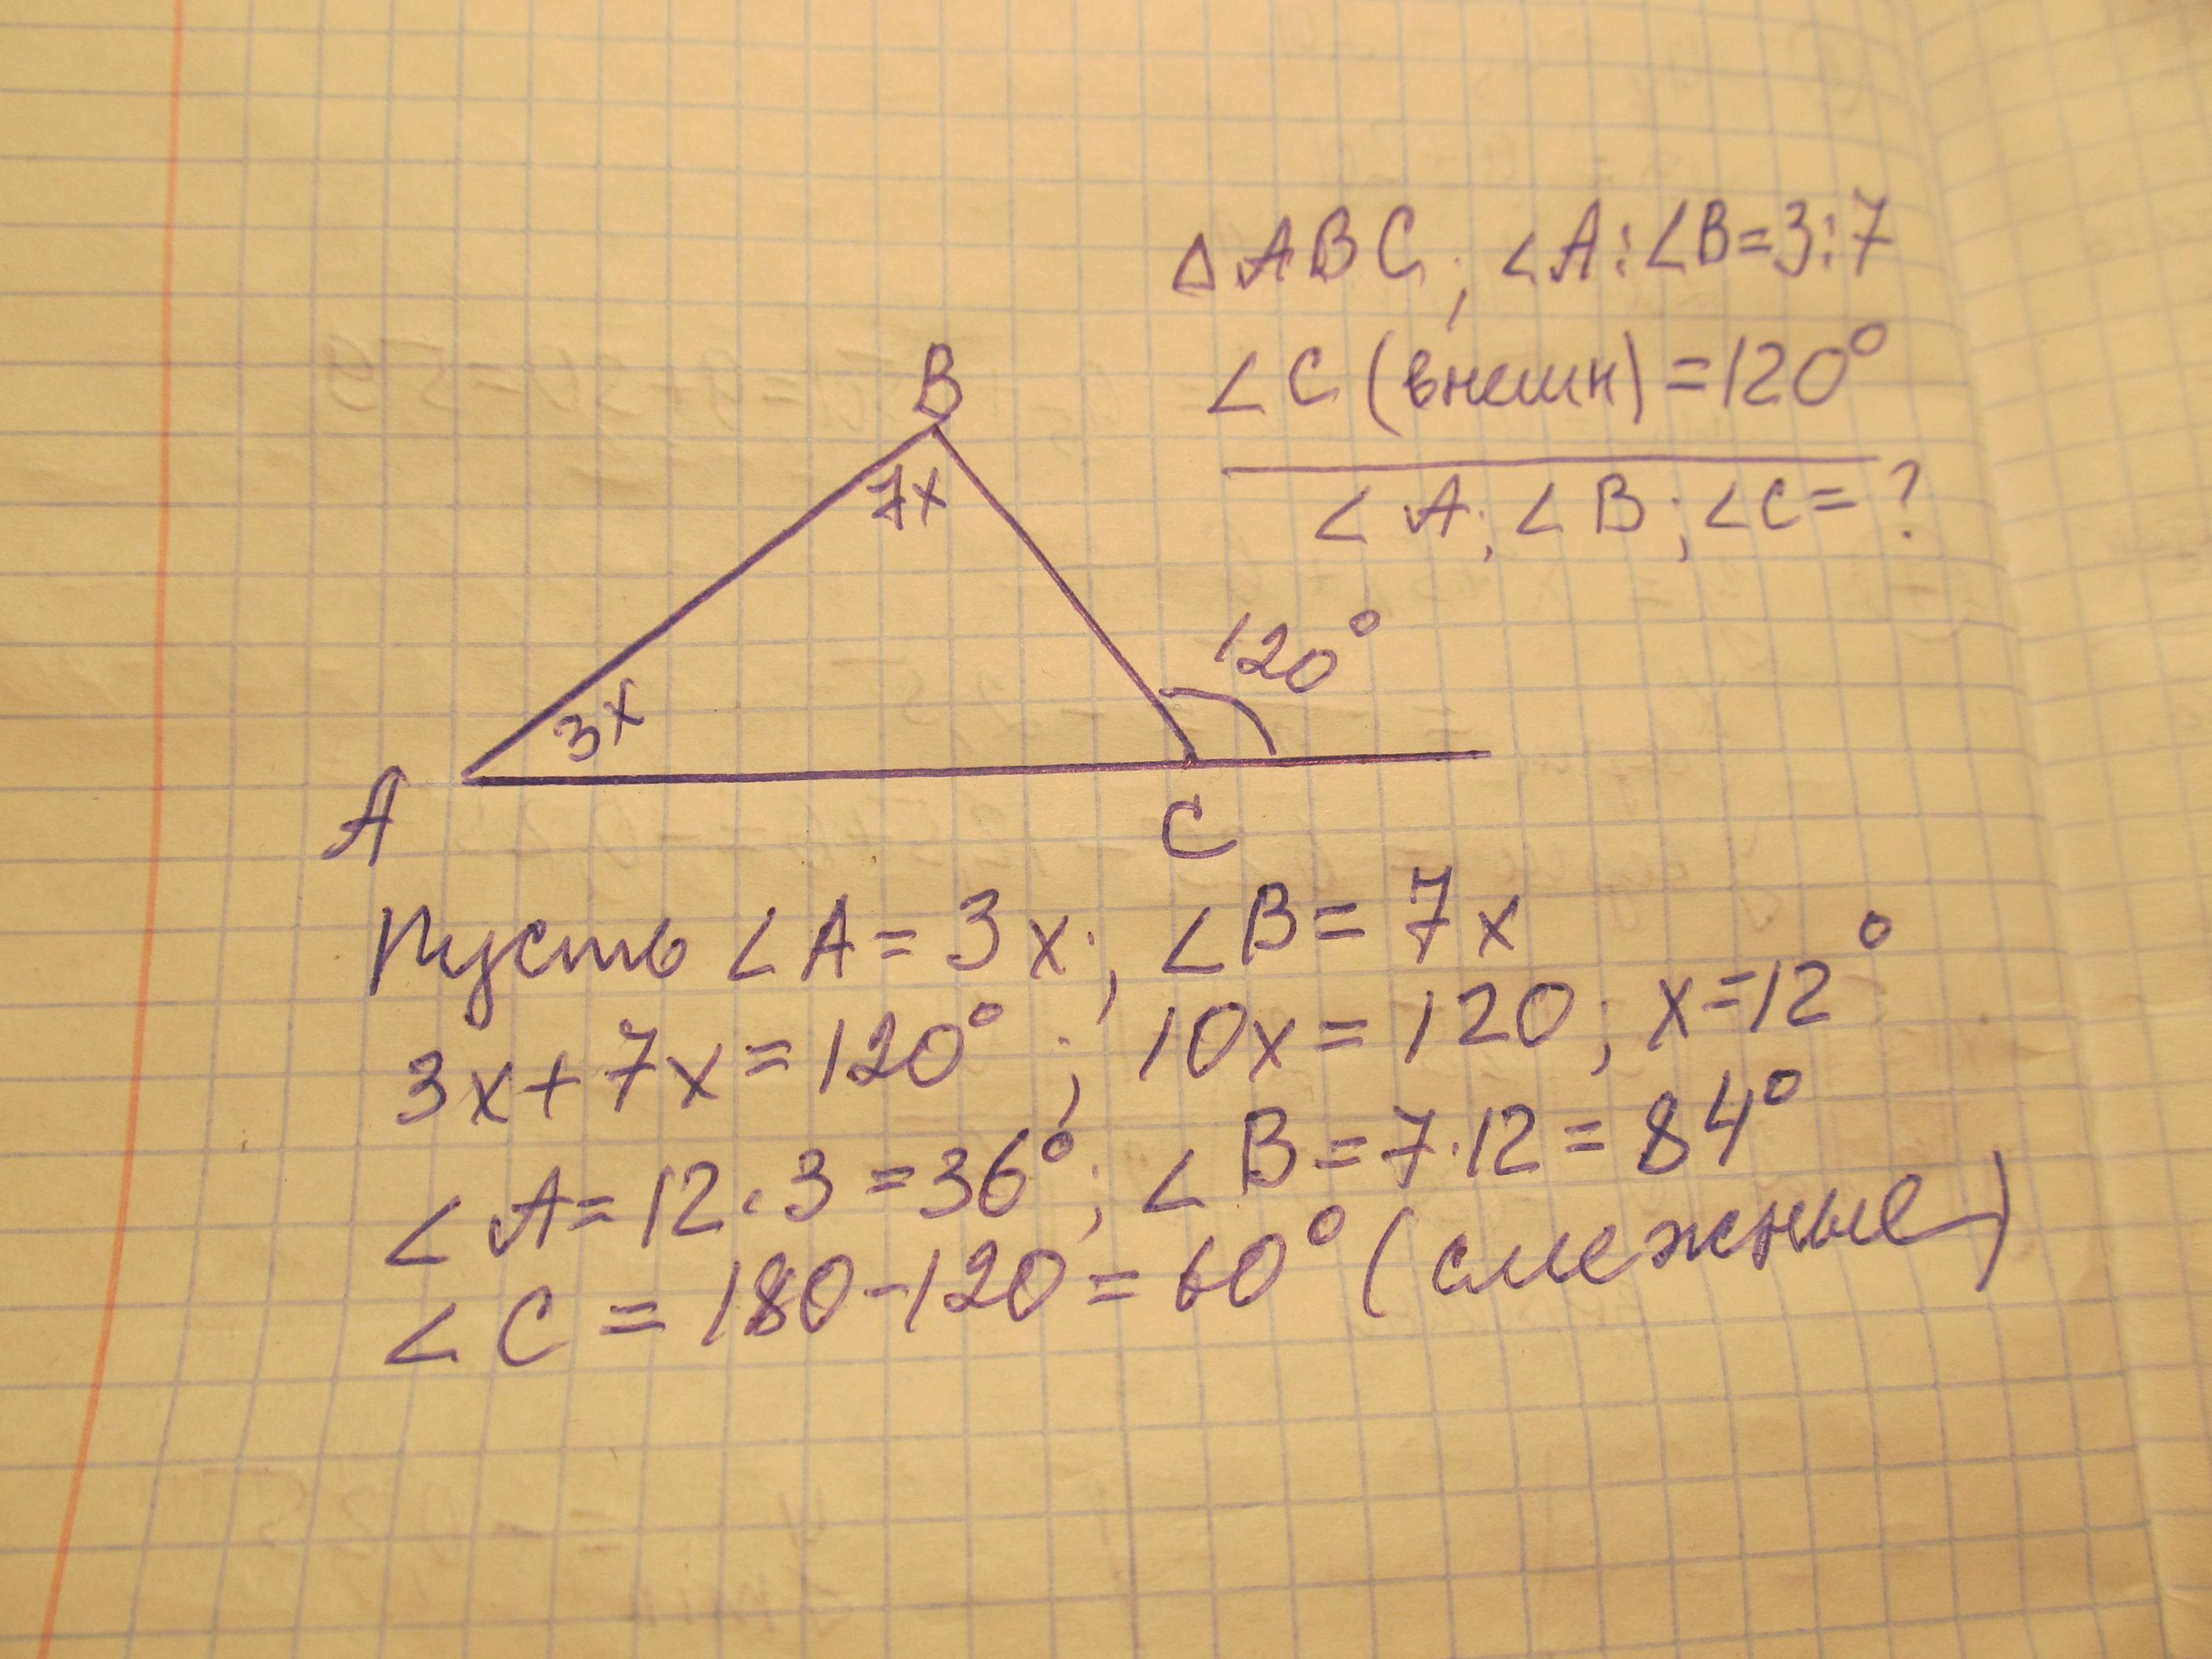 △ABC; ∠A:∠B=3:7
∠C(внешн)=120°
∠A; ∠B; ∠C=?
B
7x
120°
3x
A
C
Пусть ∠A=3x; ∠B=7x
3x+7x=120°; 10x=120; x=12°
∠A=12·3=36°; ∠B=7·12=84°
∠C=180-120=60° (смежные)